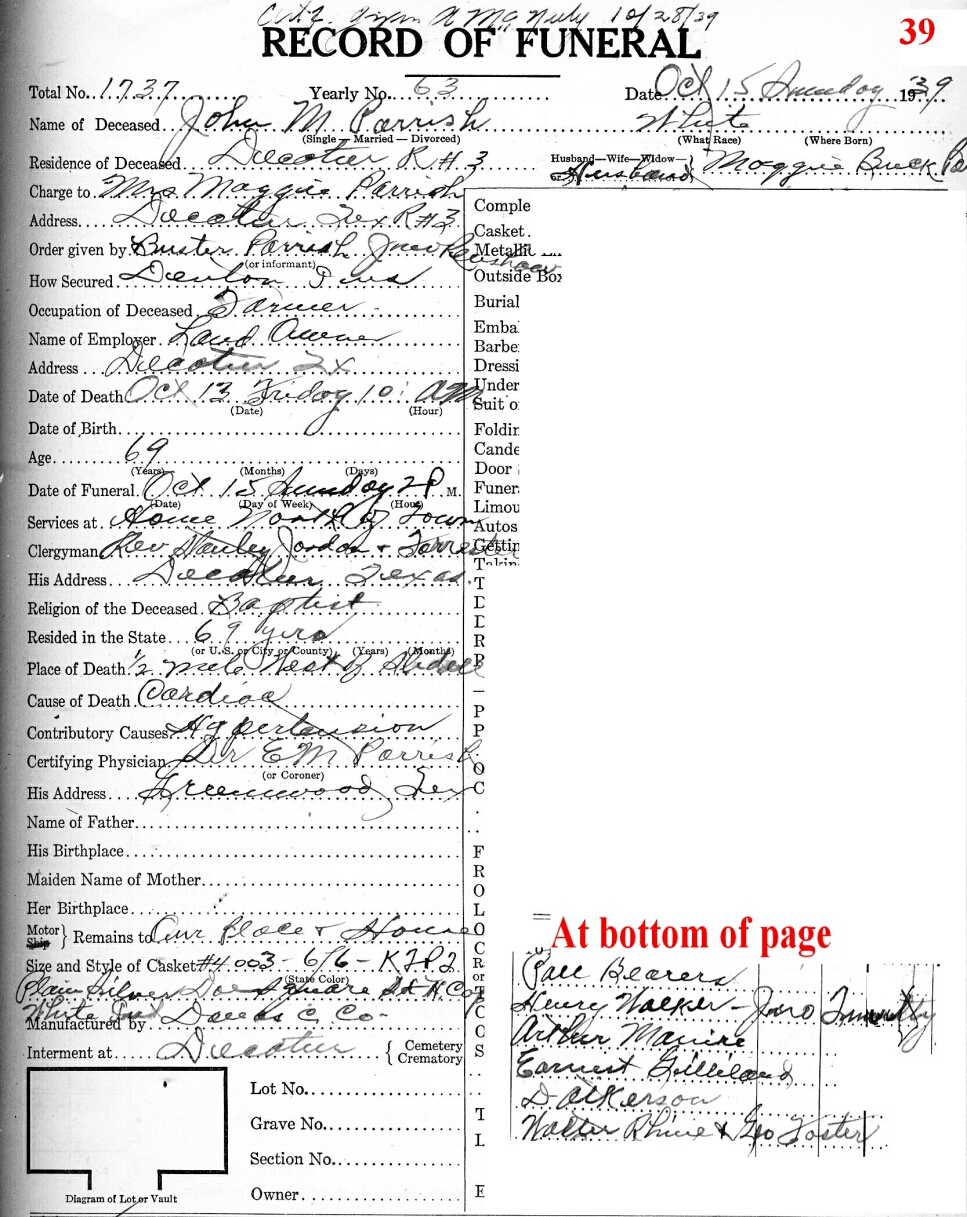 39
10/28/39
RECORD OF FUNERAL
Total No. 1737 Yearly No. 63 Date Oct 15 Sunday 1939
Name of Deceased John M. Parrish White
(Single — Married — Divorced) (What Race) (Where Born)
Residence of Deceased Decatur R#3 Husband—Wife—Widow— or Husband Maggie Buck Pa
Charge to Mrs Maggie Parrish
Address Decatur Tex R#3
Order given by Buster Parrish
(or informant)
How Secured Denton
Occupation of Deceased Farmer
Name of Employer Land Owner
Address Decatur Tx
Date of Death Oct 13 Friday 10: AM
(Date) (Hour)
Date of Birth
Age 69
(Years) (Months) (Days)
Date of Funeral Oct 15 Sunday 2 P M.
(Date) (Day of Week) (Hour)
Services at Home North of Town
Clergyman Rev Stanley Jordan +
His Address Decatur Texas
Religion of the Deceased Baptist
Resided in the State 69 yrs
(or U.S. or City or County) (Years) (Months)
Place of Death 1/2 mile West of
Cause of Death Cardiac
Contributory Causes Hypertension
Certifying Physician Dr EM Parrish
(or Coroner)
His Address Greenwood Tex
Name of Father
His Birthplace
Maiden Name of Mother
Her Birthplace
Motor Ship } Remains to Our Place + House
Size and Style of Casket #4003 - 6/6 -
(State Color)
Plain Silver Doe Square
White
Manufactured by C. Co-
Interment at Decatur { Cemetery Crematory
Lot No.
Grave No.
Section No.
Owner
Diagram of Lot or Vault
Comple
Casket
Metallic
Outside Box
Burial
Emba
Barbe
Dressi
Under
Suit o
Foldin
Cande
Door
Funer
Limou
Autos
Gettin
Takin
T
D
D
R
P
P
P
O
C
F
R
O
L
O
C
R
or
T
C
O
S
T
L
E
At bottom of page
Pall Bearers
Henry Walker -
Arthur Manire
Earnest Gilliland
D Atkerson
Walter Rhine & Geo Foster